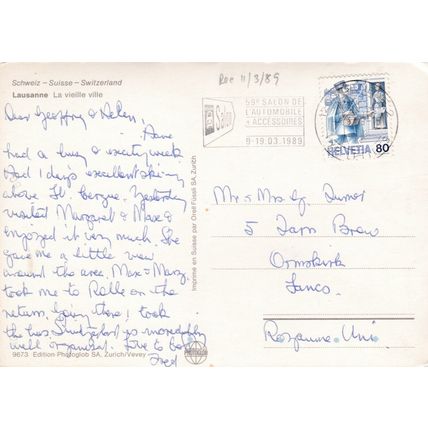 Rec 11/3/89
Schweiz – Suisse – Switzerland
Lausanne La vieille ville
Dear Geoffrey & Helen,
Have
had a busy & exciting week
Had 1 days excellent skiing
above St. Cergue. Yesterday
visited Margaret & Max &
enjoyed it very much. She
gave me a little view
around the area. Max & Mary
took me to Rolle on the
return. Going there I took
the bus. Switzerland is incredibly
well organised. Love to both
Fred
9673 Edition Photoglob SA, Zurich/Vevey
PHOTOGLOB
Imprimé en Suisse par Orell Füssli SA, Zurich
Salon
59e SALON DE
L'AUTOMOBILE
+ ACCESSOIRES
9-19.03.1989
HELVETIA 80
Mr & Mrs G.
5 Tarn Brow
Ormskirk
Lancs.
Royaume-Uni